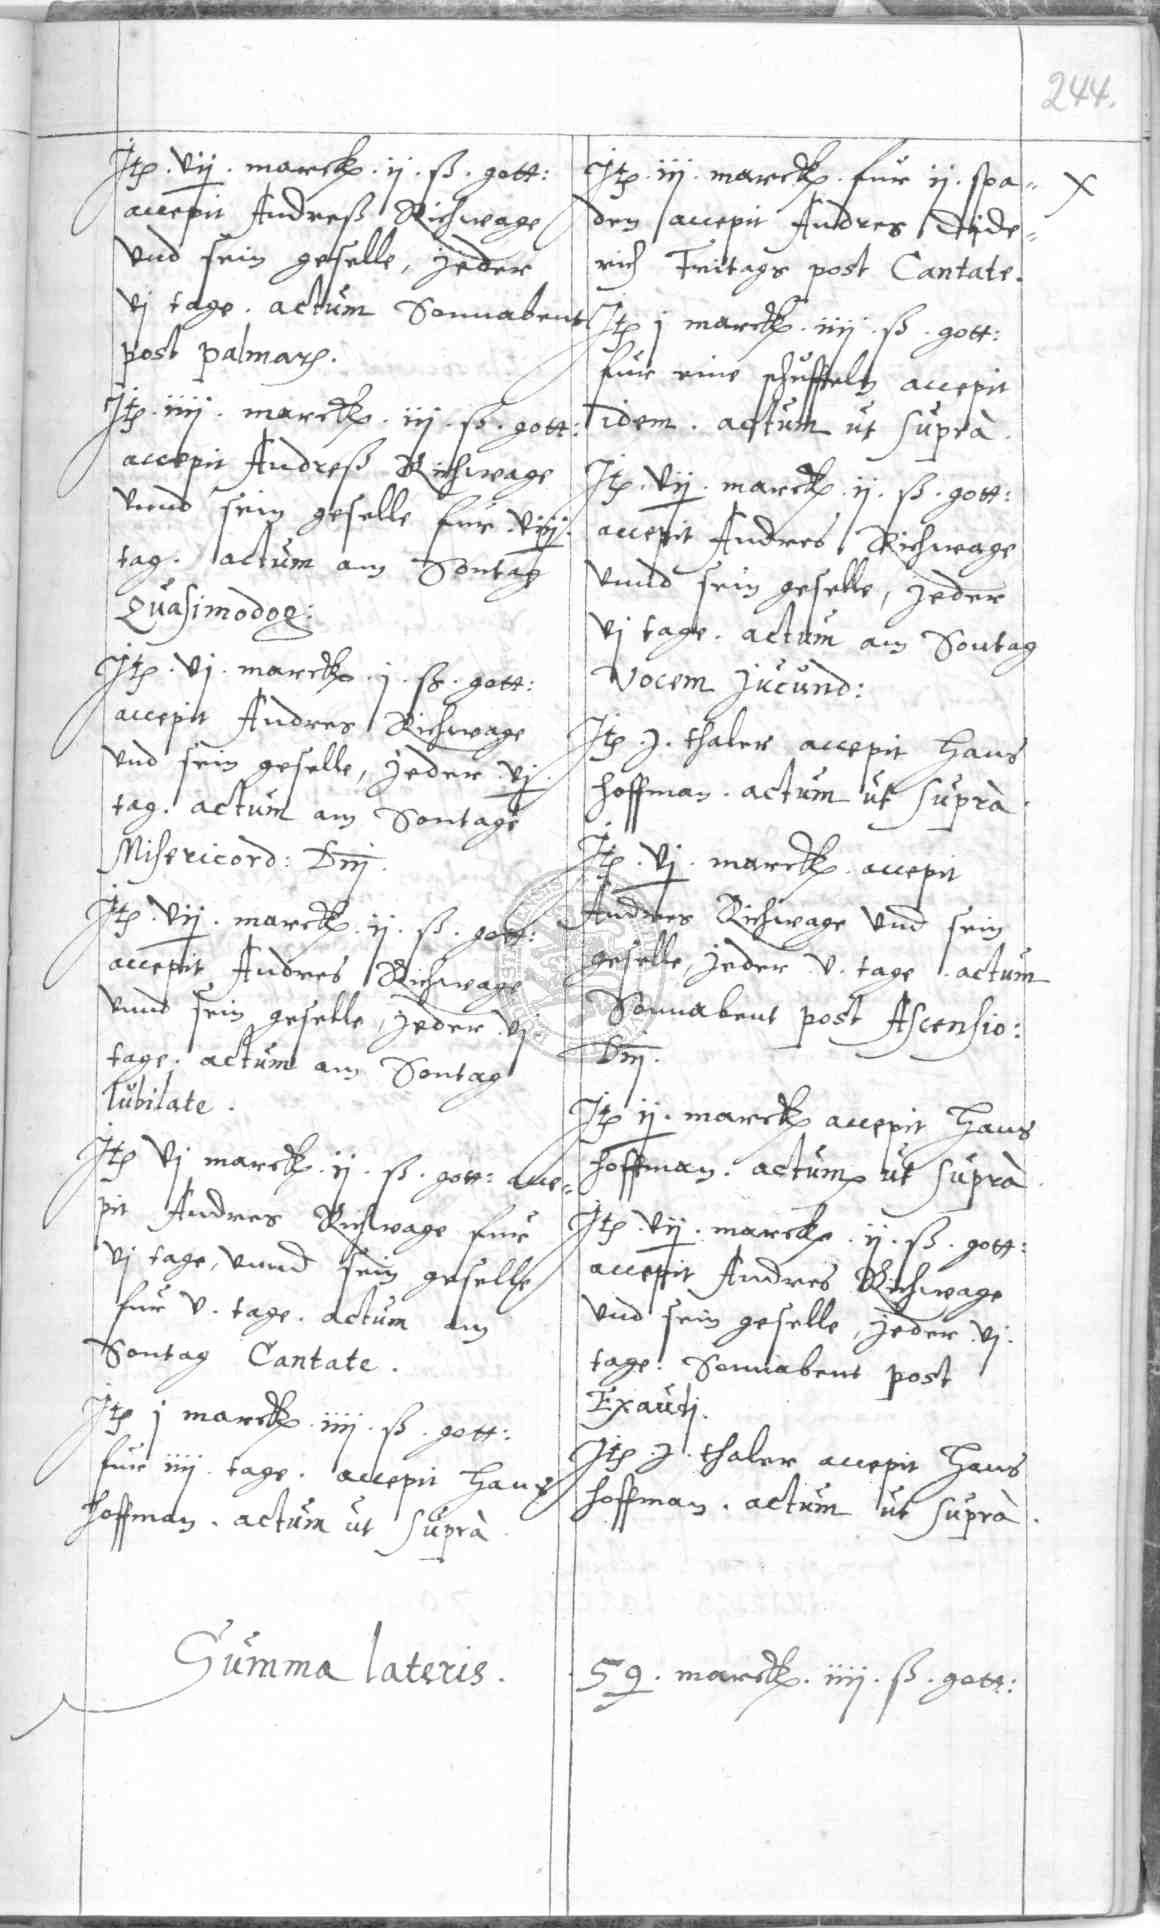 244.
Jtem .vij. marck .ij. ß. gott:
accepit Andreß Richwage
vnd sein geselle, jeder
vj tage. actum Sonnabent
post palmarum.
Jtem .iiij. marck .iij. ß. gott:
accepit Andreß Richwage
vnnd sein geselle fur .viij.
tag. actum am Sontag
Quasimodog:
Jtem .vj. marck .j. ß. gott:
accepit Andres Richwage
vnd sein geselle, jeder .vj.
tag. actum am Sontage
Misericord: Dnj.
Jtem .vij. marck .ij. ß. gott:
accepit Andres Richwage
vnnd sein geselle, jeder .vj.
tage. actum am Sontag
Iubilate.
Jtem vj marck .ij. ß. gott: acce=
pit Andres Richwage fur
vj tage, vnnd sein geselle
fur v. tage. actum am
Sontag Cantate.
Jtem j marck .iiij. ß. gott:
fur iiij tage. accepit Hans
Hoffman. actum ut suprà
Summa lateris.
Jtem .iij. marck. fur ij. spa=
den accepit Andres Dide=
rich Fritags post Cantate.
x
Jtem j marck .iiij. ß. gott:
fur eine schuffeln accepit
idem. actum ut suprà.
Jtem .vij. marck .ij. ß. gott:
accepit Andres Richwage
vnnd sein geselle, jeder
vj tage. actum am Sontag
Vocem jucund:
Jtem .j. thaler accepit Hans
Hoffman. actum ut suprà.
Jtem .vj. marck. accepit
Andres Richwage vnd sein
geselle, jeder .v. tage. actum
Sonnabent post Ascensio:
Dnj.
Jtem ij. marck accepit Hans
Hoffman. actum ut suprà.
Jtem .vij. marck .ij. ß. gott:
accepit Andres Richwage
vnd sein geselle, jeder .vj.
tage. Sonnabent post
Exaudj.
Jtem .j. thaler accepit Hans
Hoffman. actum ut suprà.
59. marck. iiij. ß. gott: